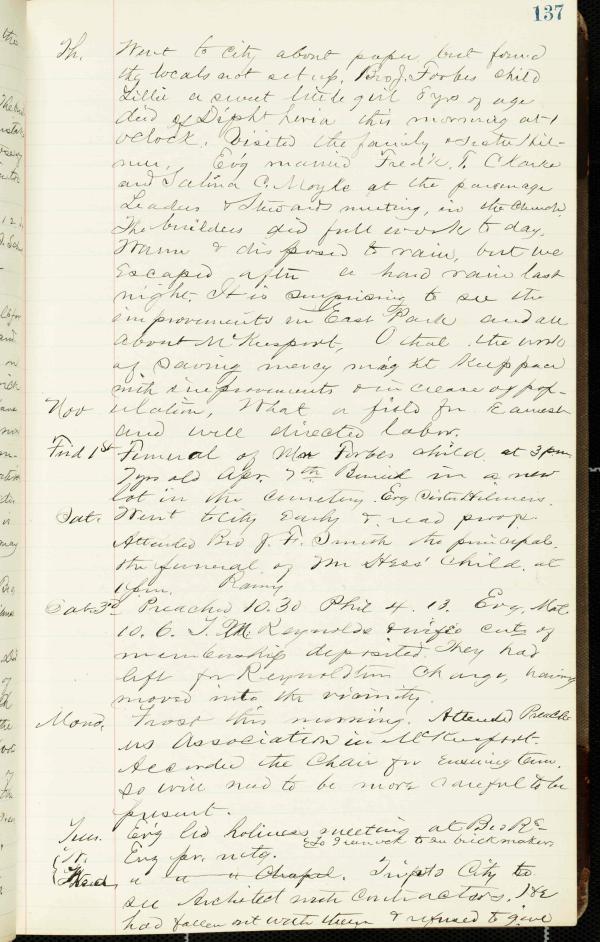 137
Th. Went to City about paper but found
the locals not set up. Bro J. Forbes child
Lillie a sweet little girl 6 yrs of age
died of Diphtheria this morning at 1
oclock. Visited the family & Sister Hil-
ner. Ev'g married Fred'k T. Clarke
and Salina C. Moyle at the parsonage
Leaders & Stewards meeting, in the Church.
The builders did full work to day.
Warm & disposed to rain, but we
Escaped after a hard rain last
night. It is surprising to see the
improvements in East Park and all
about McKeesport, O that the work
of Saving mercy might keep pace
with improvements & increase of pop-
Nov ulation, What a field for Earnest
and well directed labor.
Frid 1st Funeral of Mr Forbes child at 3 pm
7 yrs old Apr. 7th Buried in a new
lot in the cemetery. Evg Sister Hilners.
Sat. Went to City Early & read proof.
Attended Bro J. F. Smith the principal,
the funeral of Mr Hess' Child. at
1 pm. Rainy
Sab 3rd Preached 10.30 Phil 4. 13. Evg. Mat
10. 6. T. M. Reynolds & wife certs of
membership deposited. They had
left for Reynoldton Charge, having
moved into the vicinity.
Mond. Frost this morning. Attended Preach-
ers Association in McKeesport.
Accorded the Chair for Ensuing term.
So will need to be more careful to be
present.
Tues. Ev'g led holiness meeting at Bro RE-
W. Evg pr. mtg. To Irwin to see brickmakers
Wed " " " Chapel. Trip to City to
see Architect with contractors. He
had fallen out with them & refused to give